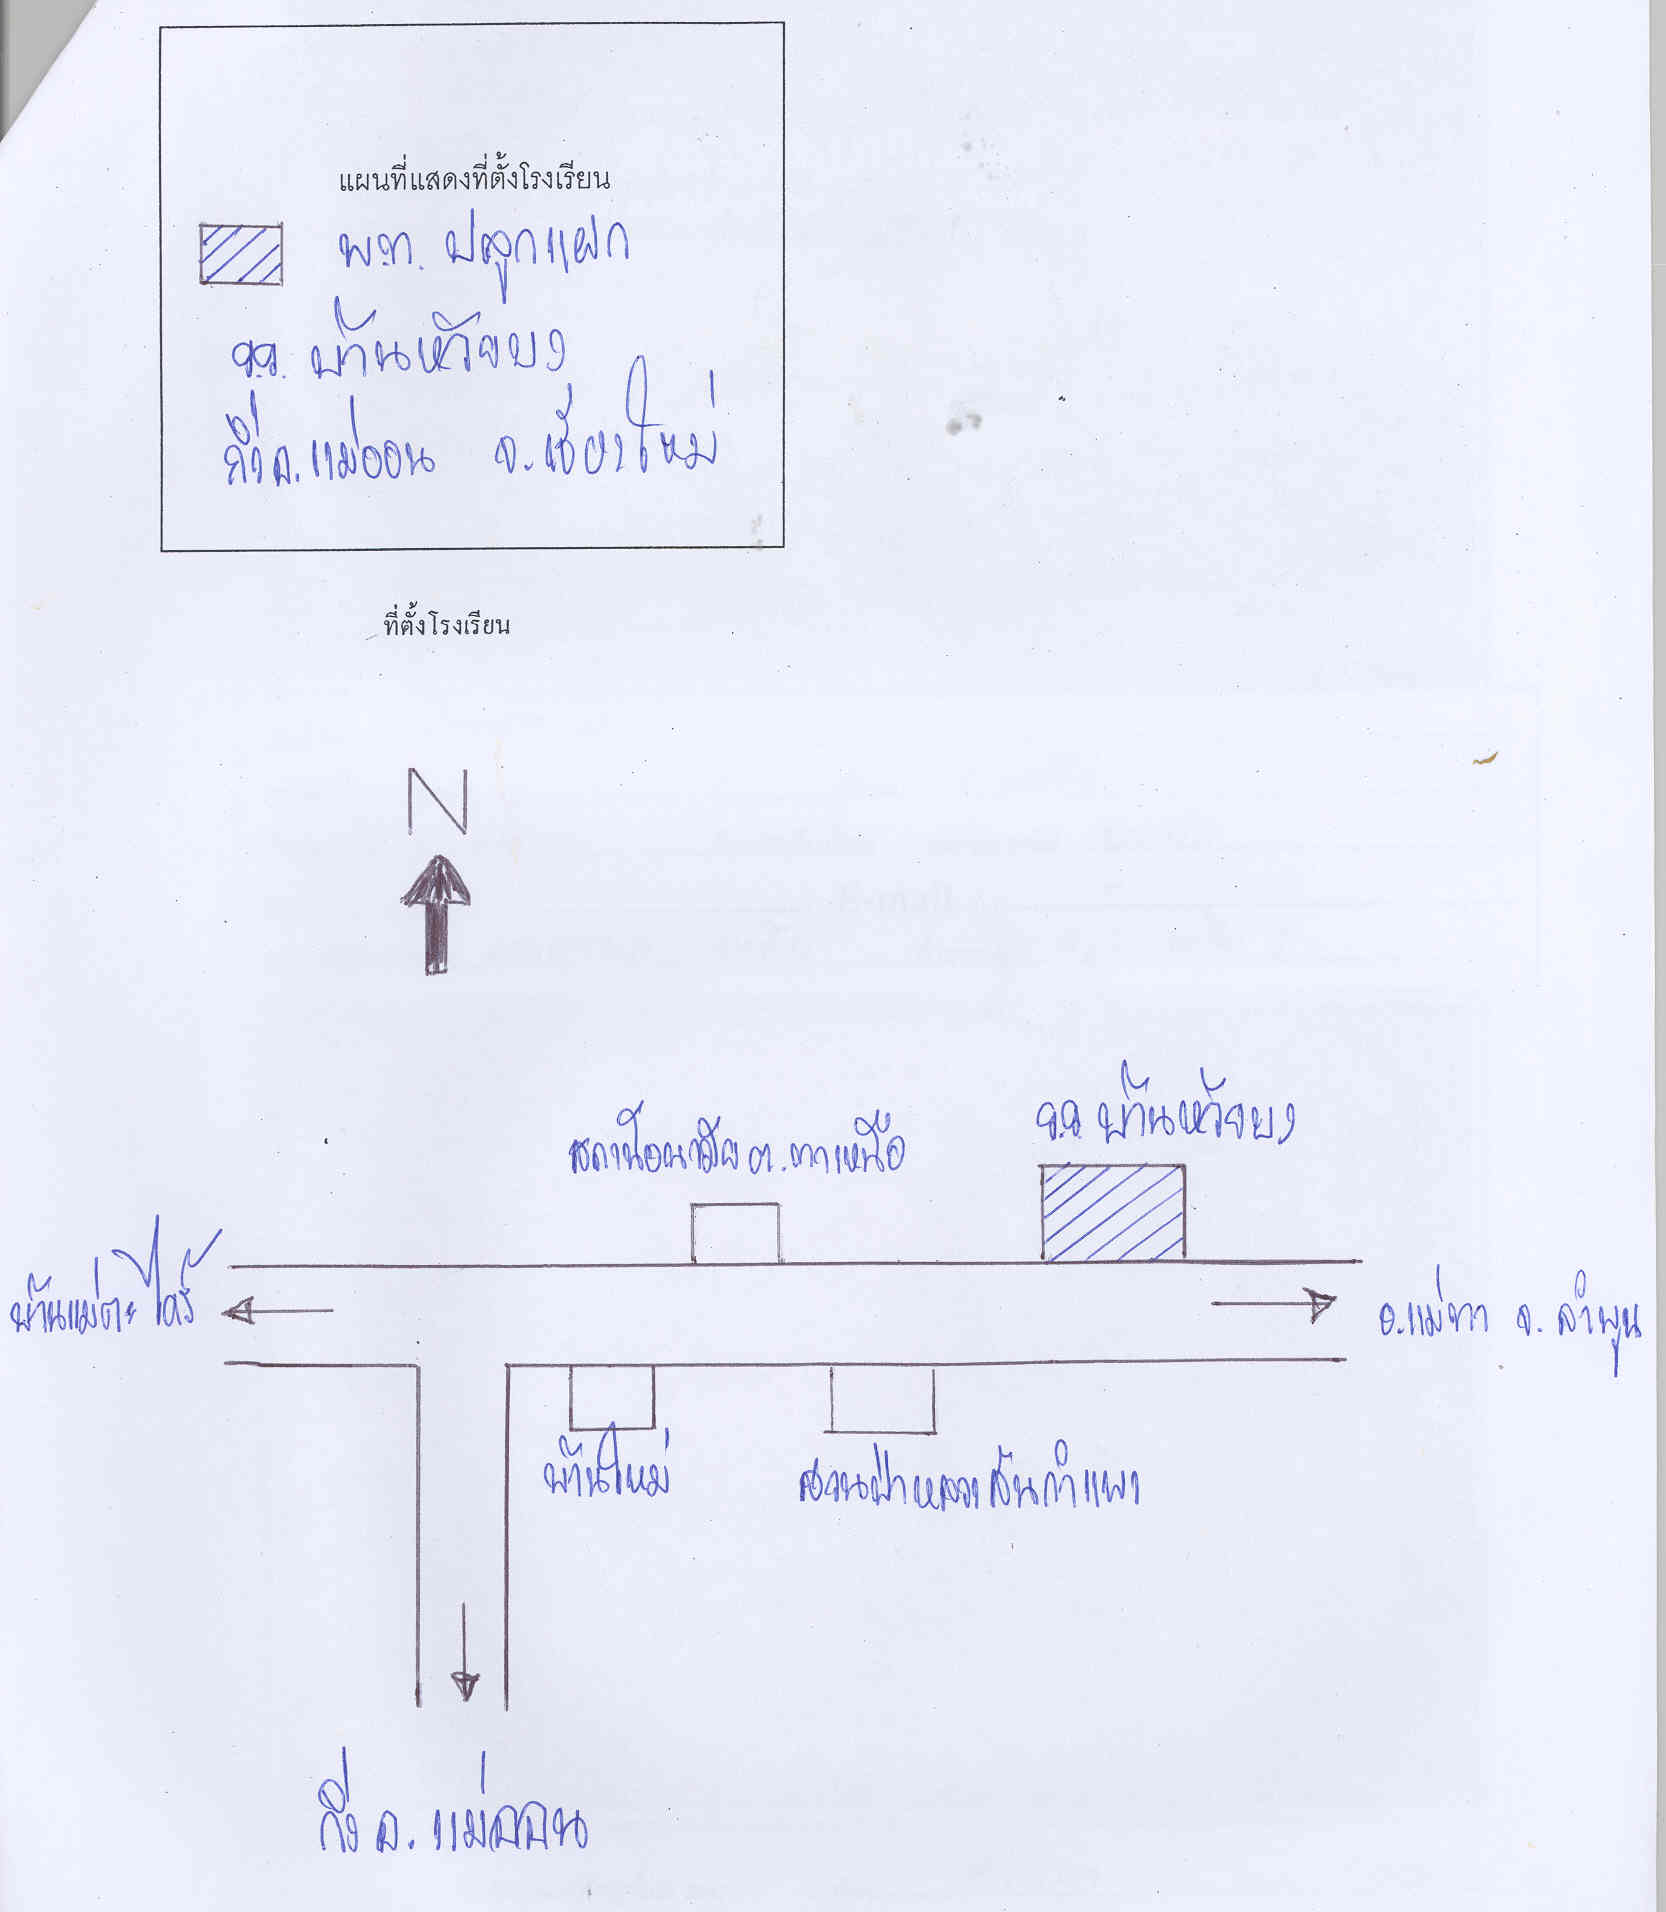 แผนที่แสดงที่ตั้งโรงเรียน
พ.ท. ปลูกแฝก
ร.ร. บ้านหัวยบง
กิ่ง อ. แม่ออน จ. เชียงใหม่
ที่ตั้งโรงเรียน
N
ร.ร. บ้านหัวยบง
สถานีอนามัย ต. ทาเหนือ
บ้านแม่ตะไคร้
อ. แม่ทา จ. ลำพูน
บ้านใหม่
สวนป่าหลวงสันกำแพง
กิ่ง อ. แม่ออน